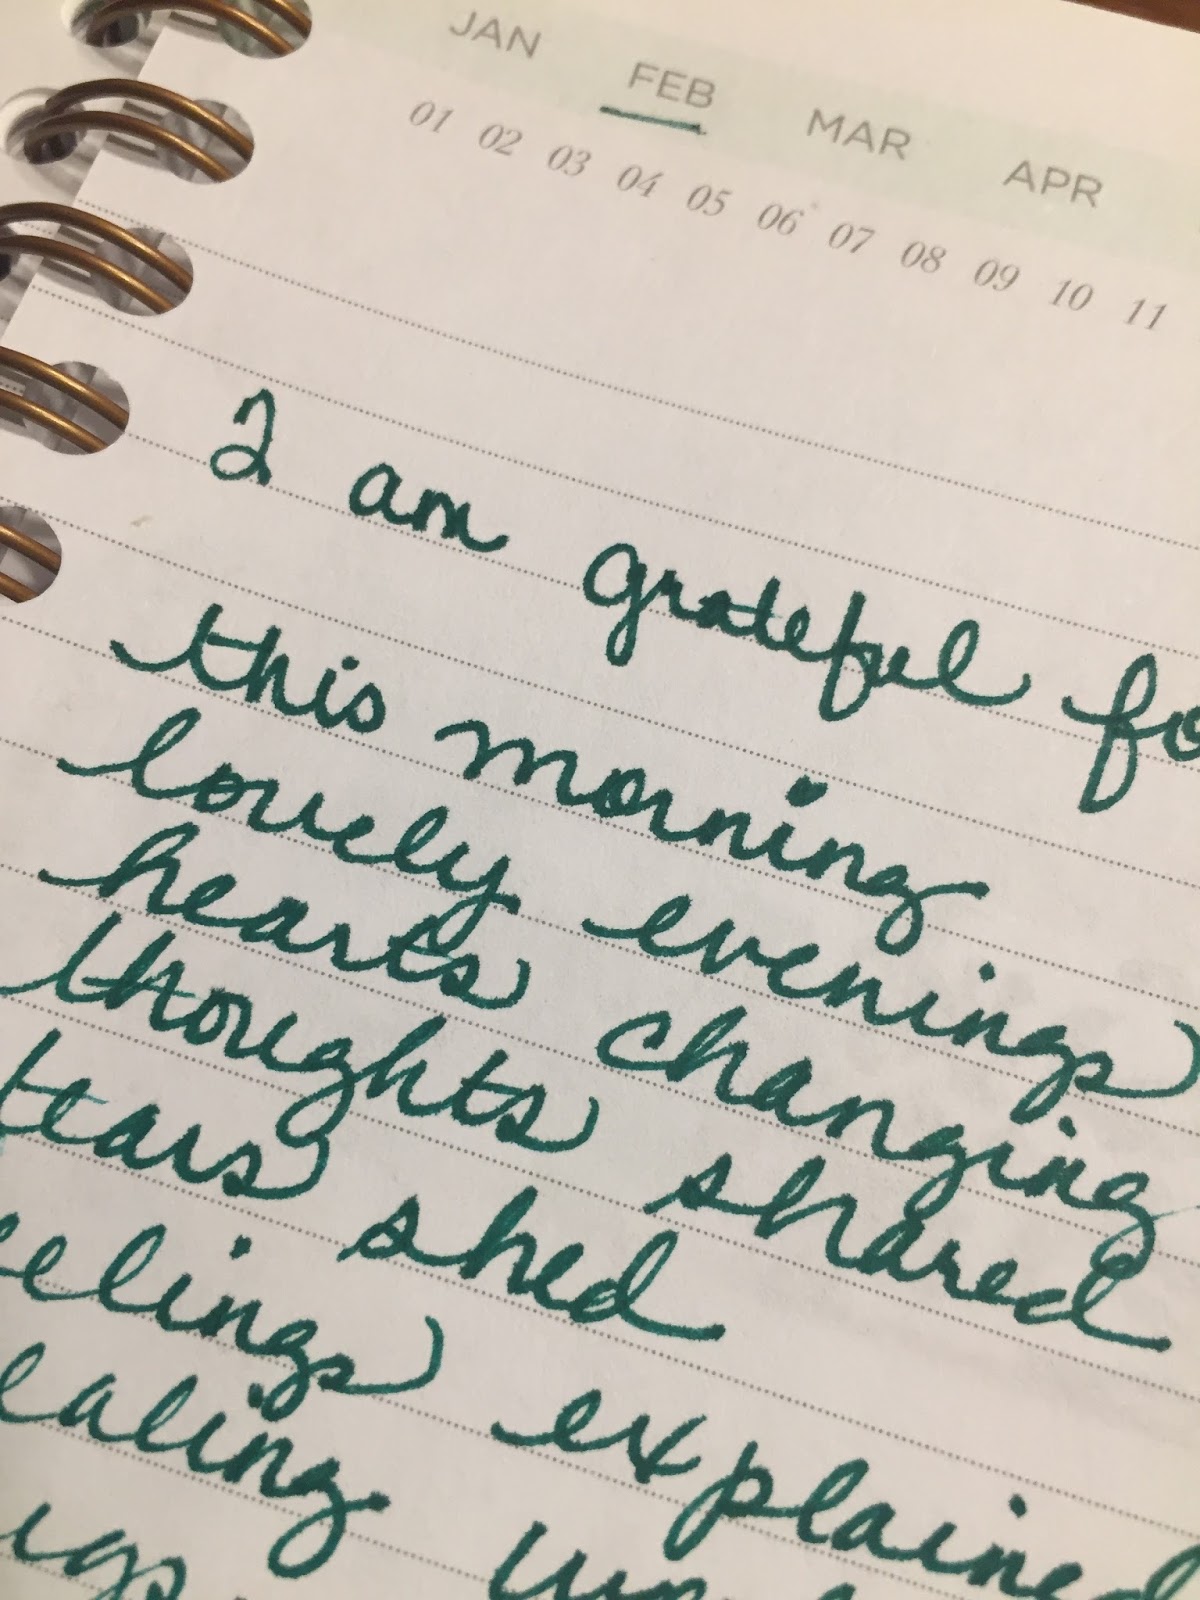 JAN FEB MAR APR
01 02 03 04 05 06 07 08 09 10 11
I am grateful fo
this morning
lovely evenings
hearts changing
thoughts shared
tears shed
eelings explained
ealing